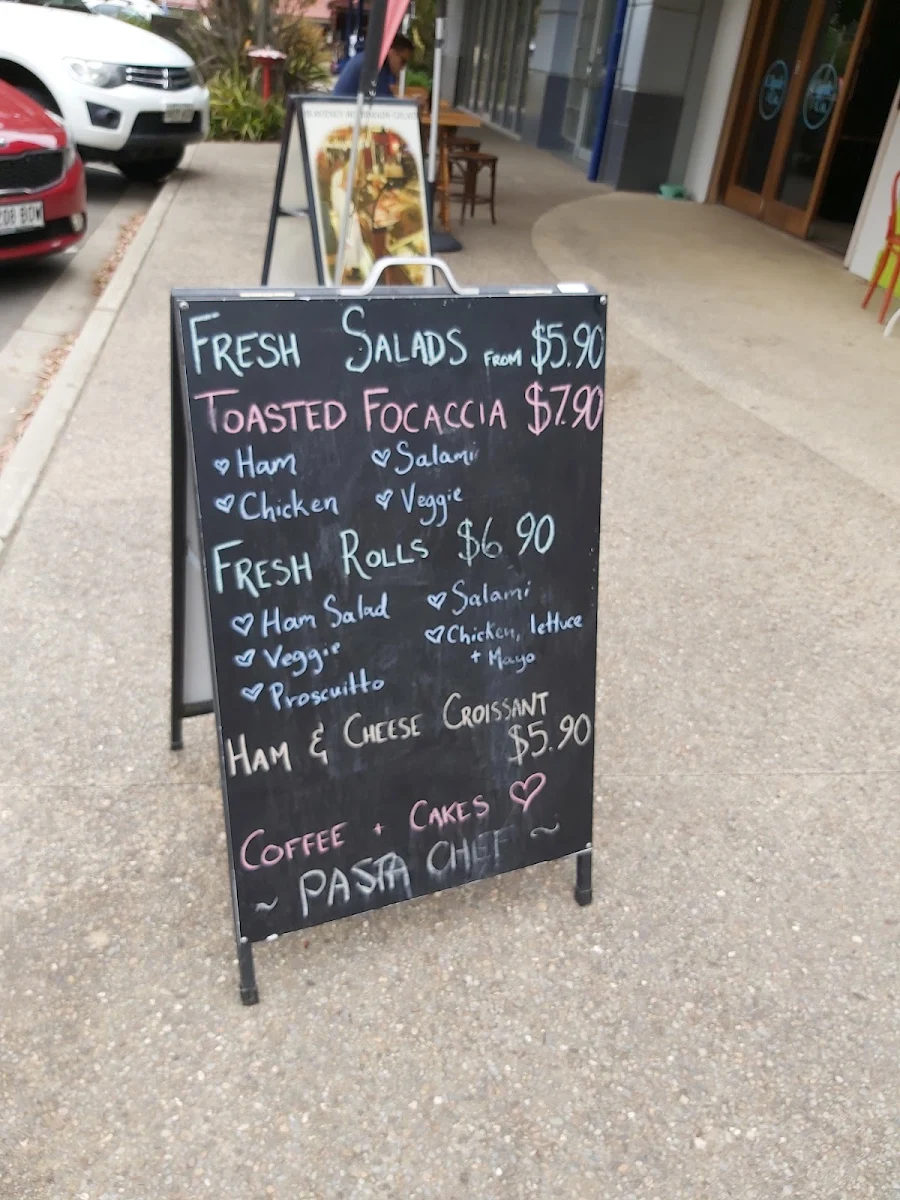 FRESH SALADS FROM $5.90
TOASTED FOCACCIA $7.90
Ham
Salami
Chicken
Veggie
FRESH ROLLS $6 90
Ham Salad
Salami
Veggie
Chicken, lettuce
+ Mayo
Proscuitto
HAM & CHEESE CROISSANT
$5.90
COFFEE + CAKES
~ PASTA CHEF ~